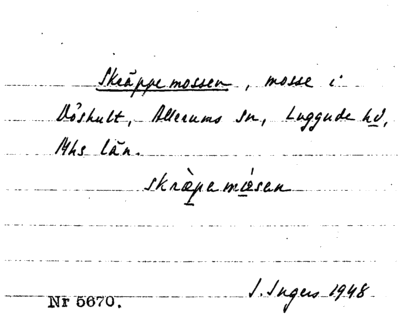 Skräppemossen, mosse i
Döshult, Allerums sn, Luggude hd,
Mhs län.
skræ̀pemåsen
I. Ingers 1948
Nr 5670.